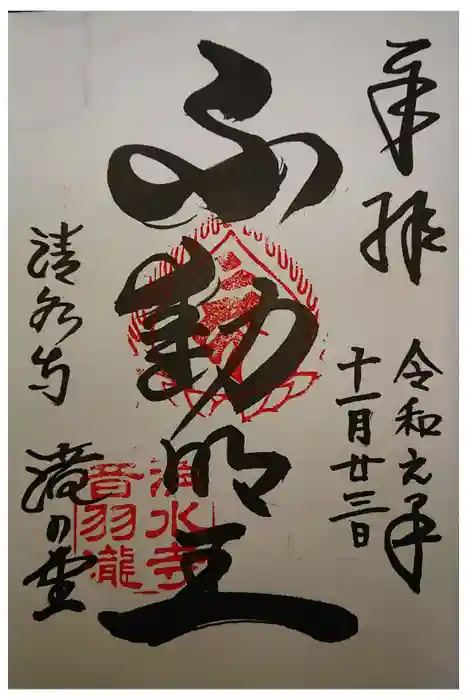 奉拝
令和元年
十一月廿三日
不動明王
清水寺
音羽瀧
清水寺 滝の堂